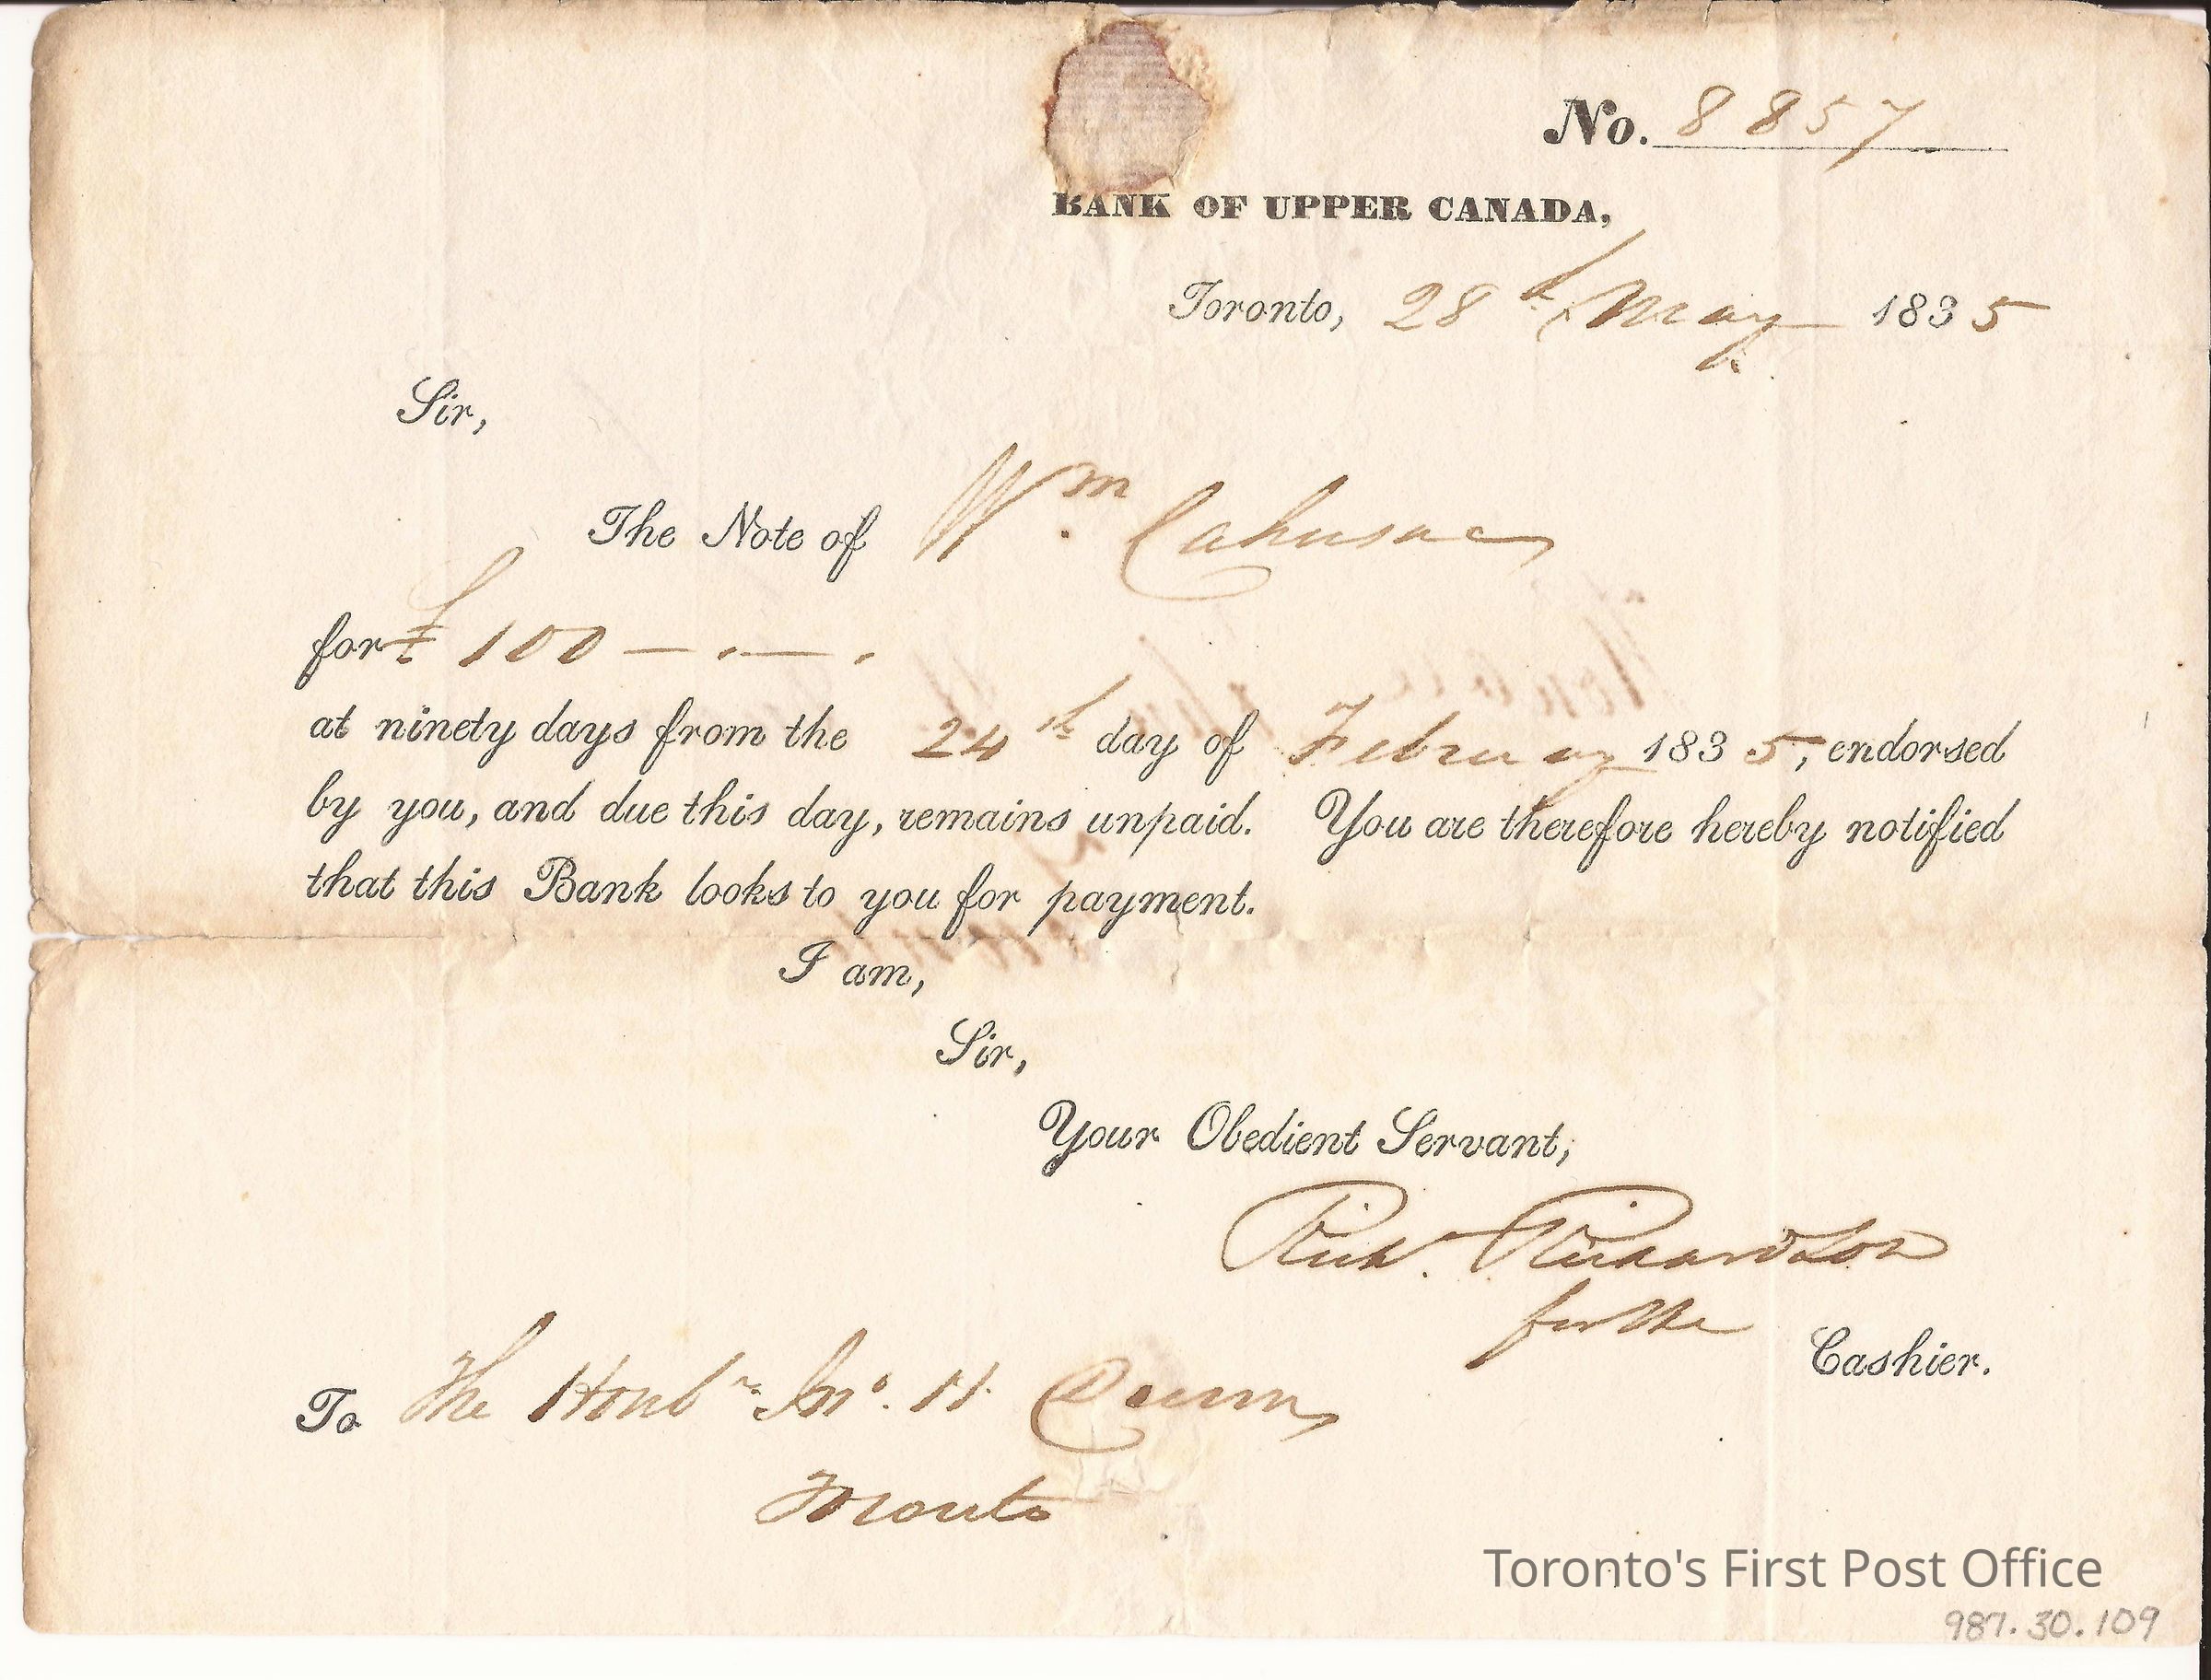 No. 8857
BANK OF UPPER CANADA,
Toronto, 28th May 1835
Sir,
The Note of Wm Cahusac
for £ 100 — . — .
at ninety days from the 24th day of February 1835, endorsed
by you, and due this day, remains unpaid. You are therefore hereby notified
that this Bank looks to you for payment.
I am,
Sir,
Your Obedient Servant,
Richd. Richardson
for the
Cashier.
To The Honble Jno. H Dunn
Toronto
Toronto's First Post Office
987.30.109